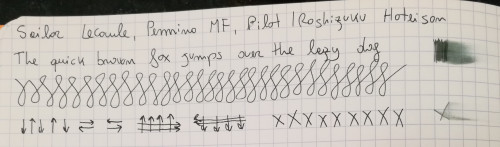 Sailor Lecoule, Pennino MF, Pilot Iroshizuku Hoteison
The quick brown fox jumps over the lazy dog
X X X X X X X X X X